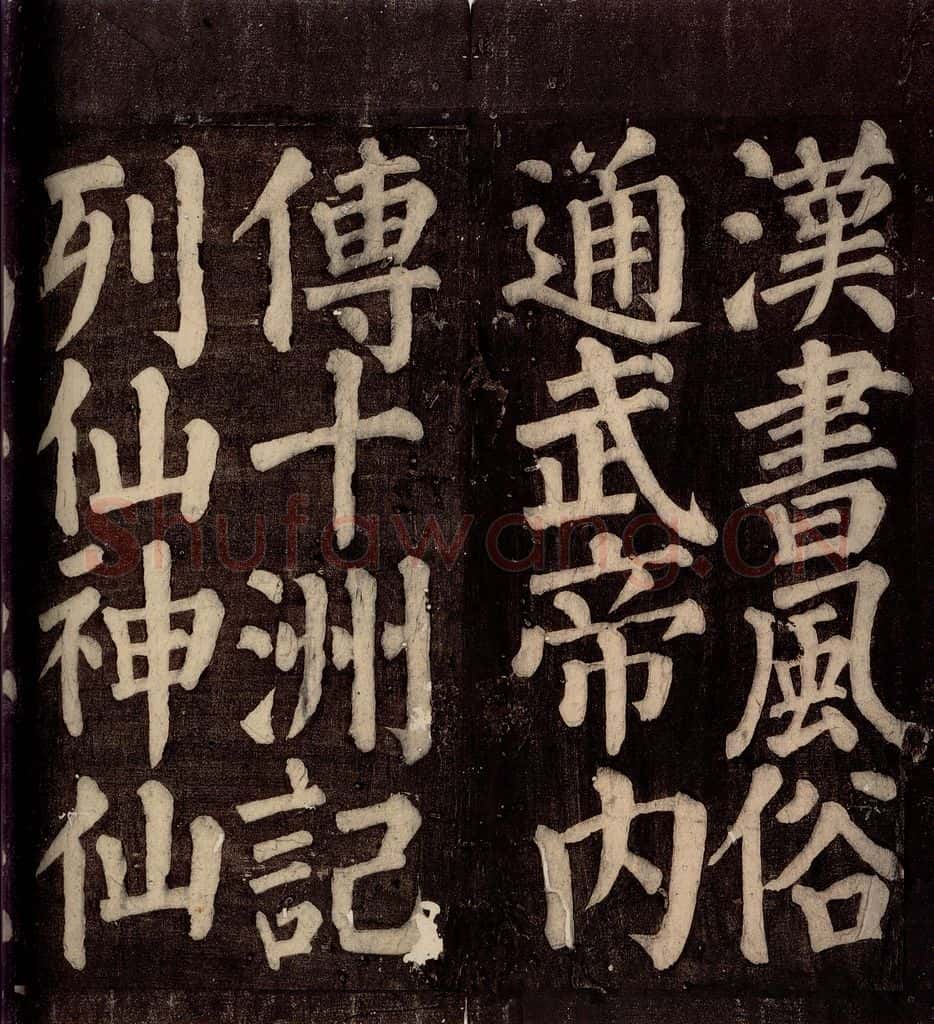 漢書風俗
通武帝内
傳十洲記
列仙神仙
Shufawang.CN